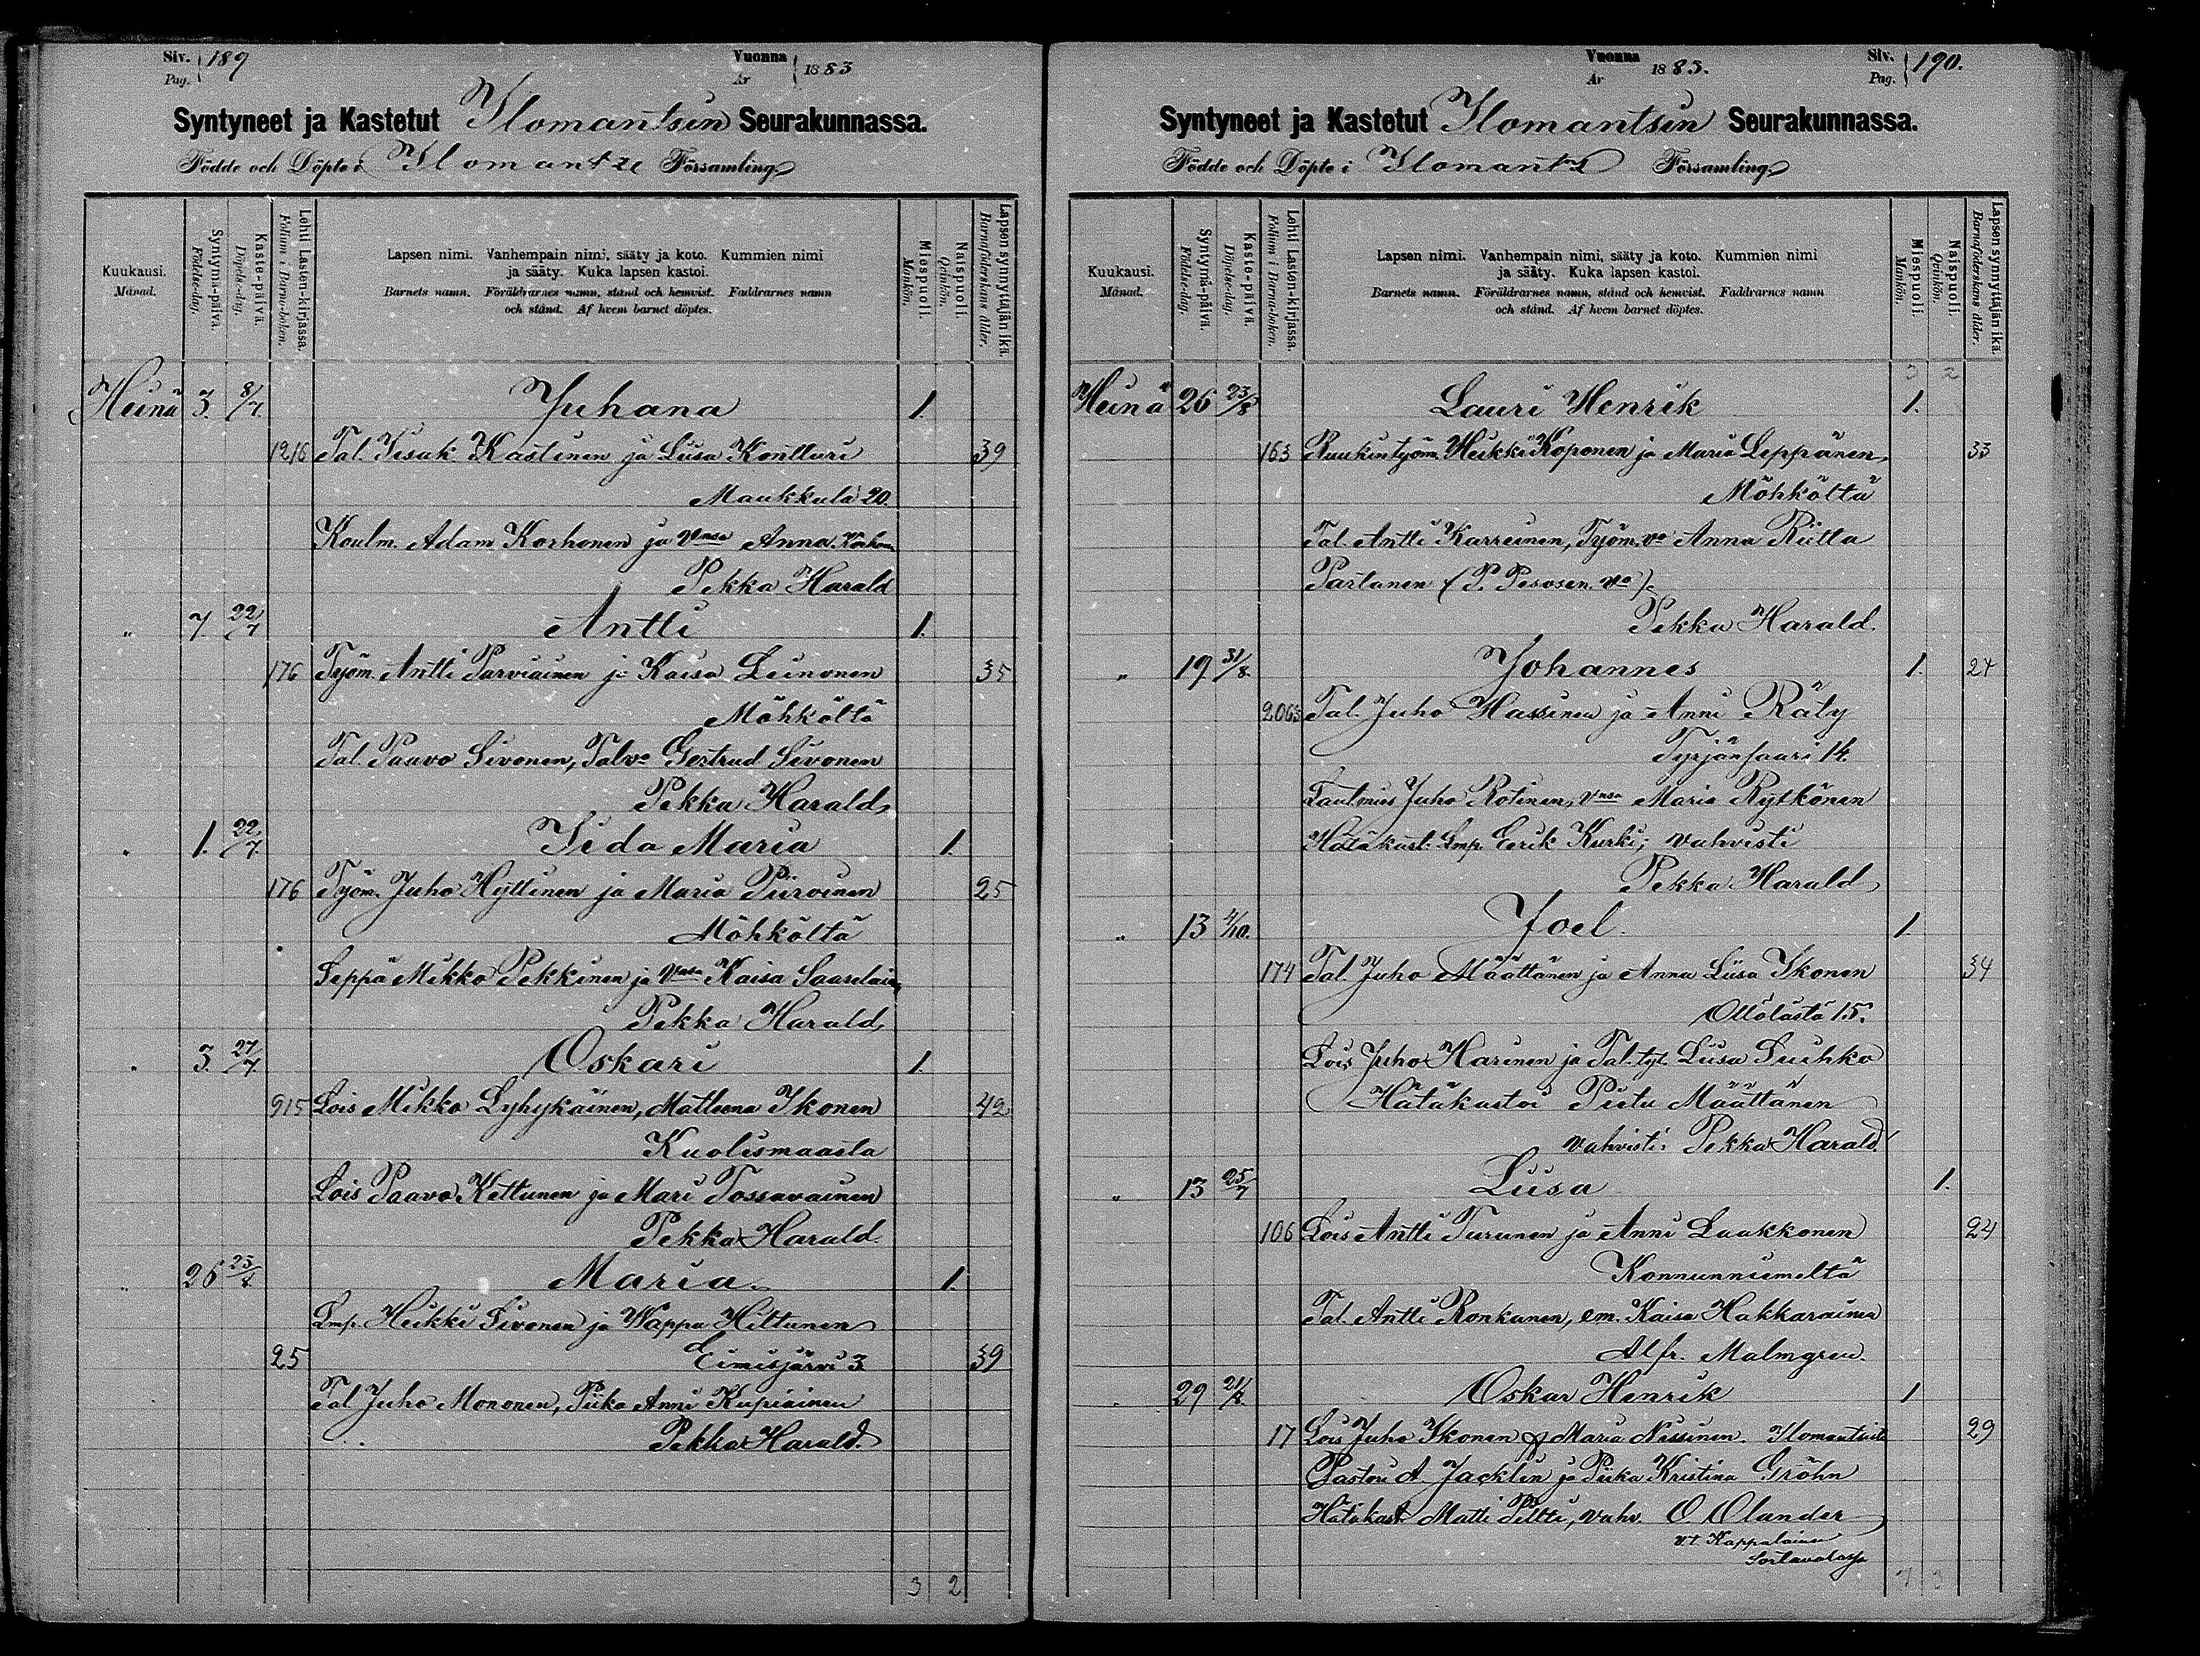 Siv. Pag. 189
Vuonna År 1883
Syntyneet ja Kastetut Ilomantsin Seurakunnassa.
Födde och Döpte i Ilomantze Församling
Kuukausi. Månad.
Syntymä-päivä. Födelse-dag.
Kaste-päivä. Döpelse-dag.
Lehti Lasten-kirjassa. Folium i Barna-boken.
Lapsen nimi. Vanhempain nimi, sääty ja koto. Kummien nimi
ja sääty. Kuka lapsen kastoi.
Barnets namn. Föräldrarnes namn, stånd och hemvist. Faddrarnes namn
och stånd. Af hvem barnet döptes.
Miespuoli. Mankön.
Naispuoli. Qvinkön.
Lapsen synnyttäjän ikä. Barnaföderskans ålder.
Heinä 3. 8/7 Juhana 1.
1216 Tal. Iisak Kastinen ja Liisa Kontturi 39
Maukkula 20.
Koulm. Adam Korhonen ja Vnsa Anna Korhon.
Pekka Harald
" 7. 22/7 Antti 1.
176 Työm. Antti Parviainen ja Kaisa Leinonen 35
Möhköltä
Tal. Paavo Sivonen, Tal.vo Gertrud Sivonen
Pekka Harald
" 1. 22/7. Iida Maria 1.
176 Työm. Juho Hyttinen ja Maria Piiroinen 25
Möhköltä
Seppä Mikko Pekkinen ja Vnsa Kaisa Saarelain
Pekka Harald
" 3. 27/7. Oskari 1.
915 Lois Mikko Lyhykäinen, Matleena Ikonen 42
Kuolismaasta
Lois Paavo Kettunen ja Mari Tossavainen
Pekka Harald.
" 26 23/8 Maria. 1.
Lmp. Heikki Sivonen ja Wappu Hiltunen
25 Eimisjärvi 3 39
Tal Juho Mononen, Piika Anni Kupiainen
Pekka Harald.
3 2
Vuonna År 1883.
Siv. Pag. 190.
Syntyneet ja Kastetut Ilomantsin Seurakunnassa.
Födde och Döpte i Församling
Kuukausi. Månad.
Syntymä-päivä. Födelse-dag.
Kaste-päivä. Döpelse-dag.
Lehti Lasten-kirjassa. Folium i Barna-boken.
Lapsen nimi. Vanhempain nimi, sääty ja koto. Kummien nimi
ja sääty. Kuka lapsen kastoi.
Barnets namn. Föräldrarnes namn, stånd och hemvist. Faddrarnes namn
och stånd. Af hvem barnet döptes.
Miespuoli. Mankön.
Naispuoli. Qvinkön.
Lapsen synnyttäjän ikä. Barnaföderskans ålder.
3 2
Heinä 26 23/8 Lauri Henrik 1.
163 Ruukintyöm. Heikki Koponen ja Maria Leppänen, 33
Möhköltä
Tal. Antti Karreinen, Työm.vo Anna Riitta
Partanen (P. Pesosen vo).
Pekka Harald.
" 19 31/8. Johannes 1. 24
206 Tal. Juho Hassinen ja Anni Räty
Tyrjänsaari 14.
Lautmies Juho Rotinen, Vnsa Maria Rytkönen
Hätäkast. Lmp. Eerik Kurki; vahvisti
Pekka Harald
" 13 4/10. Joel. 1.
174 Tal. Juho Määttänen ja Anna Liisa Ikonen 34
Ollölästä 15.
Lois Juho Harinen ja Tal. tyt. Liisa Suihko
Hätäkastoi Pietu Määttänen
vahvisti: Pekka Harald.
" 13 25/7 Liisa 1.
106 Lois Antti Turunen ja Anni Laakkonen 24
Konnunniemeltä
Tal. Antti Ronkanen, em. Kaisa Hakkarainen
Alfr. Malmgren.
" 29 21/8. Oskar Henrik 1
17 Lois Juho Ikonen & Maria Nissinen. 29
Pastori A. Jacklin ja Piika Kristina Gröhn
Hätäkast Matti Piltti, vahv. O Olander
v.t. Kappalainen
Sortavalassa
7 3